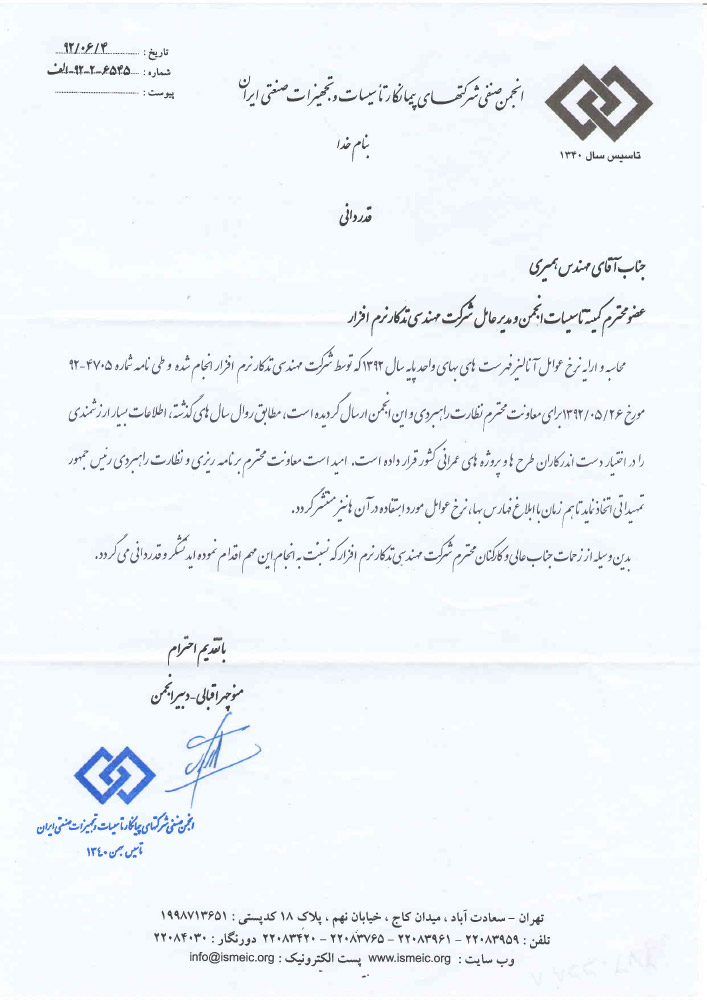 تاریخ : ۹۲/۰۶/۴
شماره : ۶۵۴۵-۲-۹۲-الف
پیوست :
انجمن صنفی شرکتهای پیمانکار تأسیسات و تجهیزات صنعتی ایران
تاسیس سال ۱۳۴۰
بنام خدا
قدردانی
جناب آقای مهندس همیری
عضو محترم کمیته تاسیسات انجمن و مدیر عامل شرکت مهندسی تدکار نرم افزار
محاسبه و ارایه نرخ عوامل آنالیز فهرست های بهای واحد پایه سال ۱۳۹۲ که توسط شرکت مهندسی تدکار نرم افزار انجام شده و طی نامه شماره ۴۷۰۵-۹۲
مورخ ۱۳۹۲/۰۵/۲۶ برای معاونت محترم نظارت راهبردی و این انجمن ارسال گردیده است، مطابق روال سال های گذشته، اطلاعات بسیار ارزشمندی
را در اختیار دست اندرکاران طرح ها و پروژه های عمرانی کشور قرار داده است. امید است معاونت محترم برنامه ریزی و نظارت راهبردی رئیس جمهور
تمهیداتی اتخاذ نماید تا هم زمان با ابلاغ فهارس بها، نرخ عوامل مورد استفاده در آن ها نیز منتشر گردد.
بدین وسیله از زحمات جناب عالی و کارکنان محترم شرکت مهندسی تدکار نرم افزار که نسبت به انجام این مهم اقدام نموده اید تشکر و قدردانی می گردد.
با تقدیم احترام
منوچهر اقبالی-دبیر انجمن
انجمن صنفی شرکتهای پیمانکار تاسیسات و تجهیزات صنعتی ایران
تاسیس بهمن ۱۳۴۰
تهران – سعادت آباد ، میدان کاج ، خیابان نهم ، پلاک ۱۸ کدپستی : ۱۹۹۸۷۱۳۶۵۱
تلفن : ۲۲۰۸۳۹۵۹ - ۲۲۰۸۳۹۶۱ - ۲۲۰۸۳۷۶۵ - ۲۲۰۸۳۴۲۰ دورنگار : ۲۲۰۸۴۰۳۰
وب سایت : www.ismeic.org پست الکترونیک : info@ismeic.org